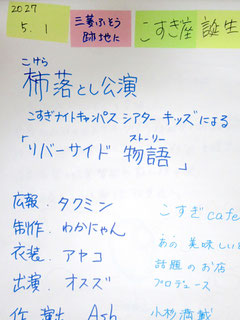 2027
5.1
三菱ふとう
跡地に
こすぎ座 誕生
こけら
柿落とし公演
こすぎナイトキャンパス シアター キッズによる
ストーリー
「リバーサイド 物語」
広報. タクミン
制作. わかにゃん
衣装. アヤコ
出演. オスズ
作 演出 Ash
こすぎ cafe
あの 美味しいと
話題の お店
プロデュース
小杉満載